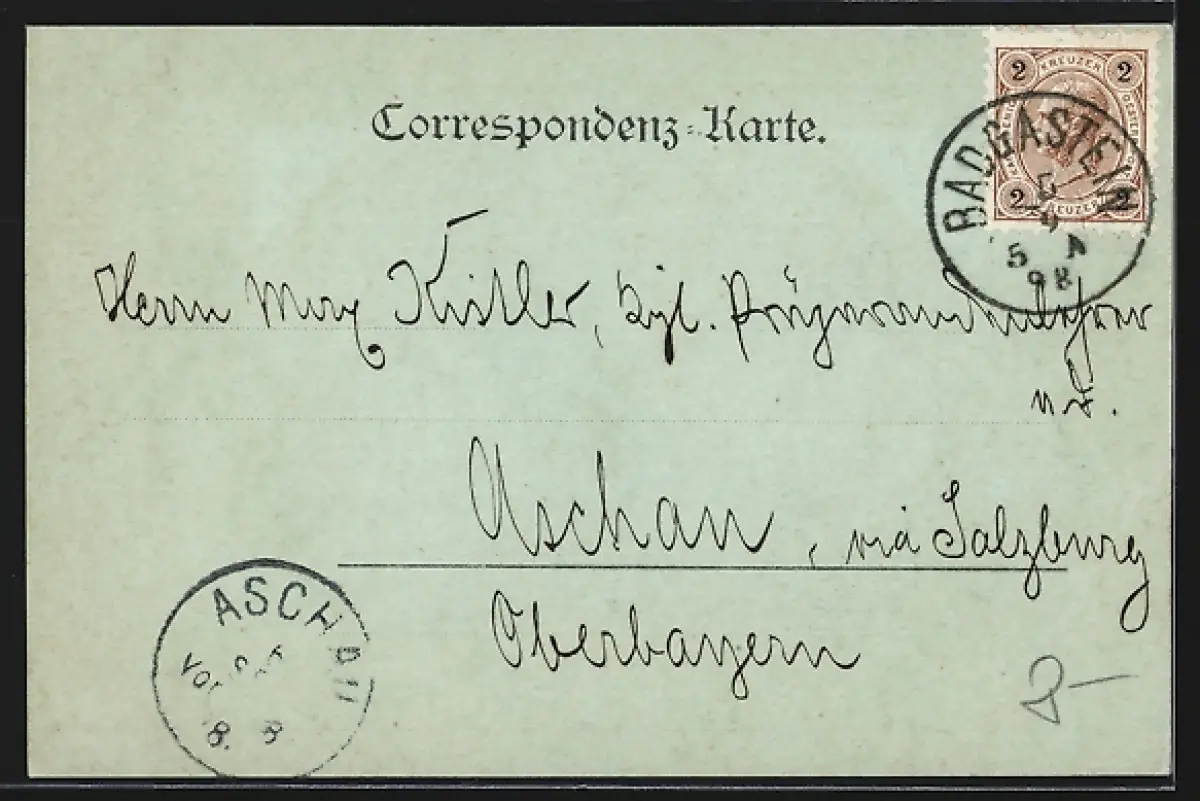 Correspondenz-Karte.
2 KREUZER 2
2 KREUZER 2
BADGASTEIN
5 A
98
Herrn Max Kistler, Kgl. Präparandenlehrer
Aschau, via Salzburg
Oberbayern
ASCHAU
VOR
8.